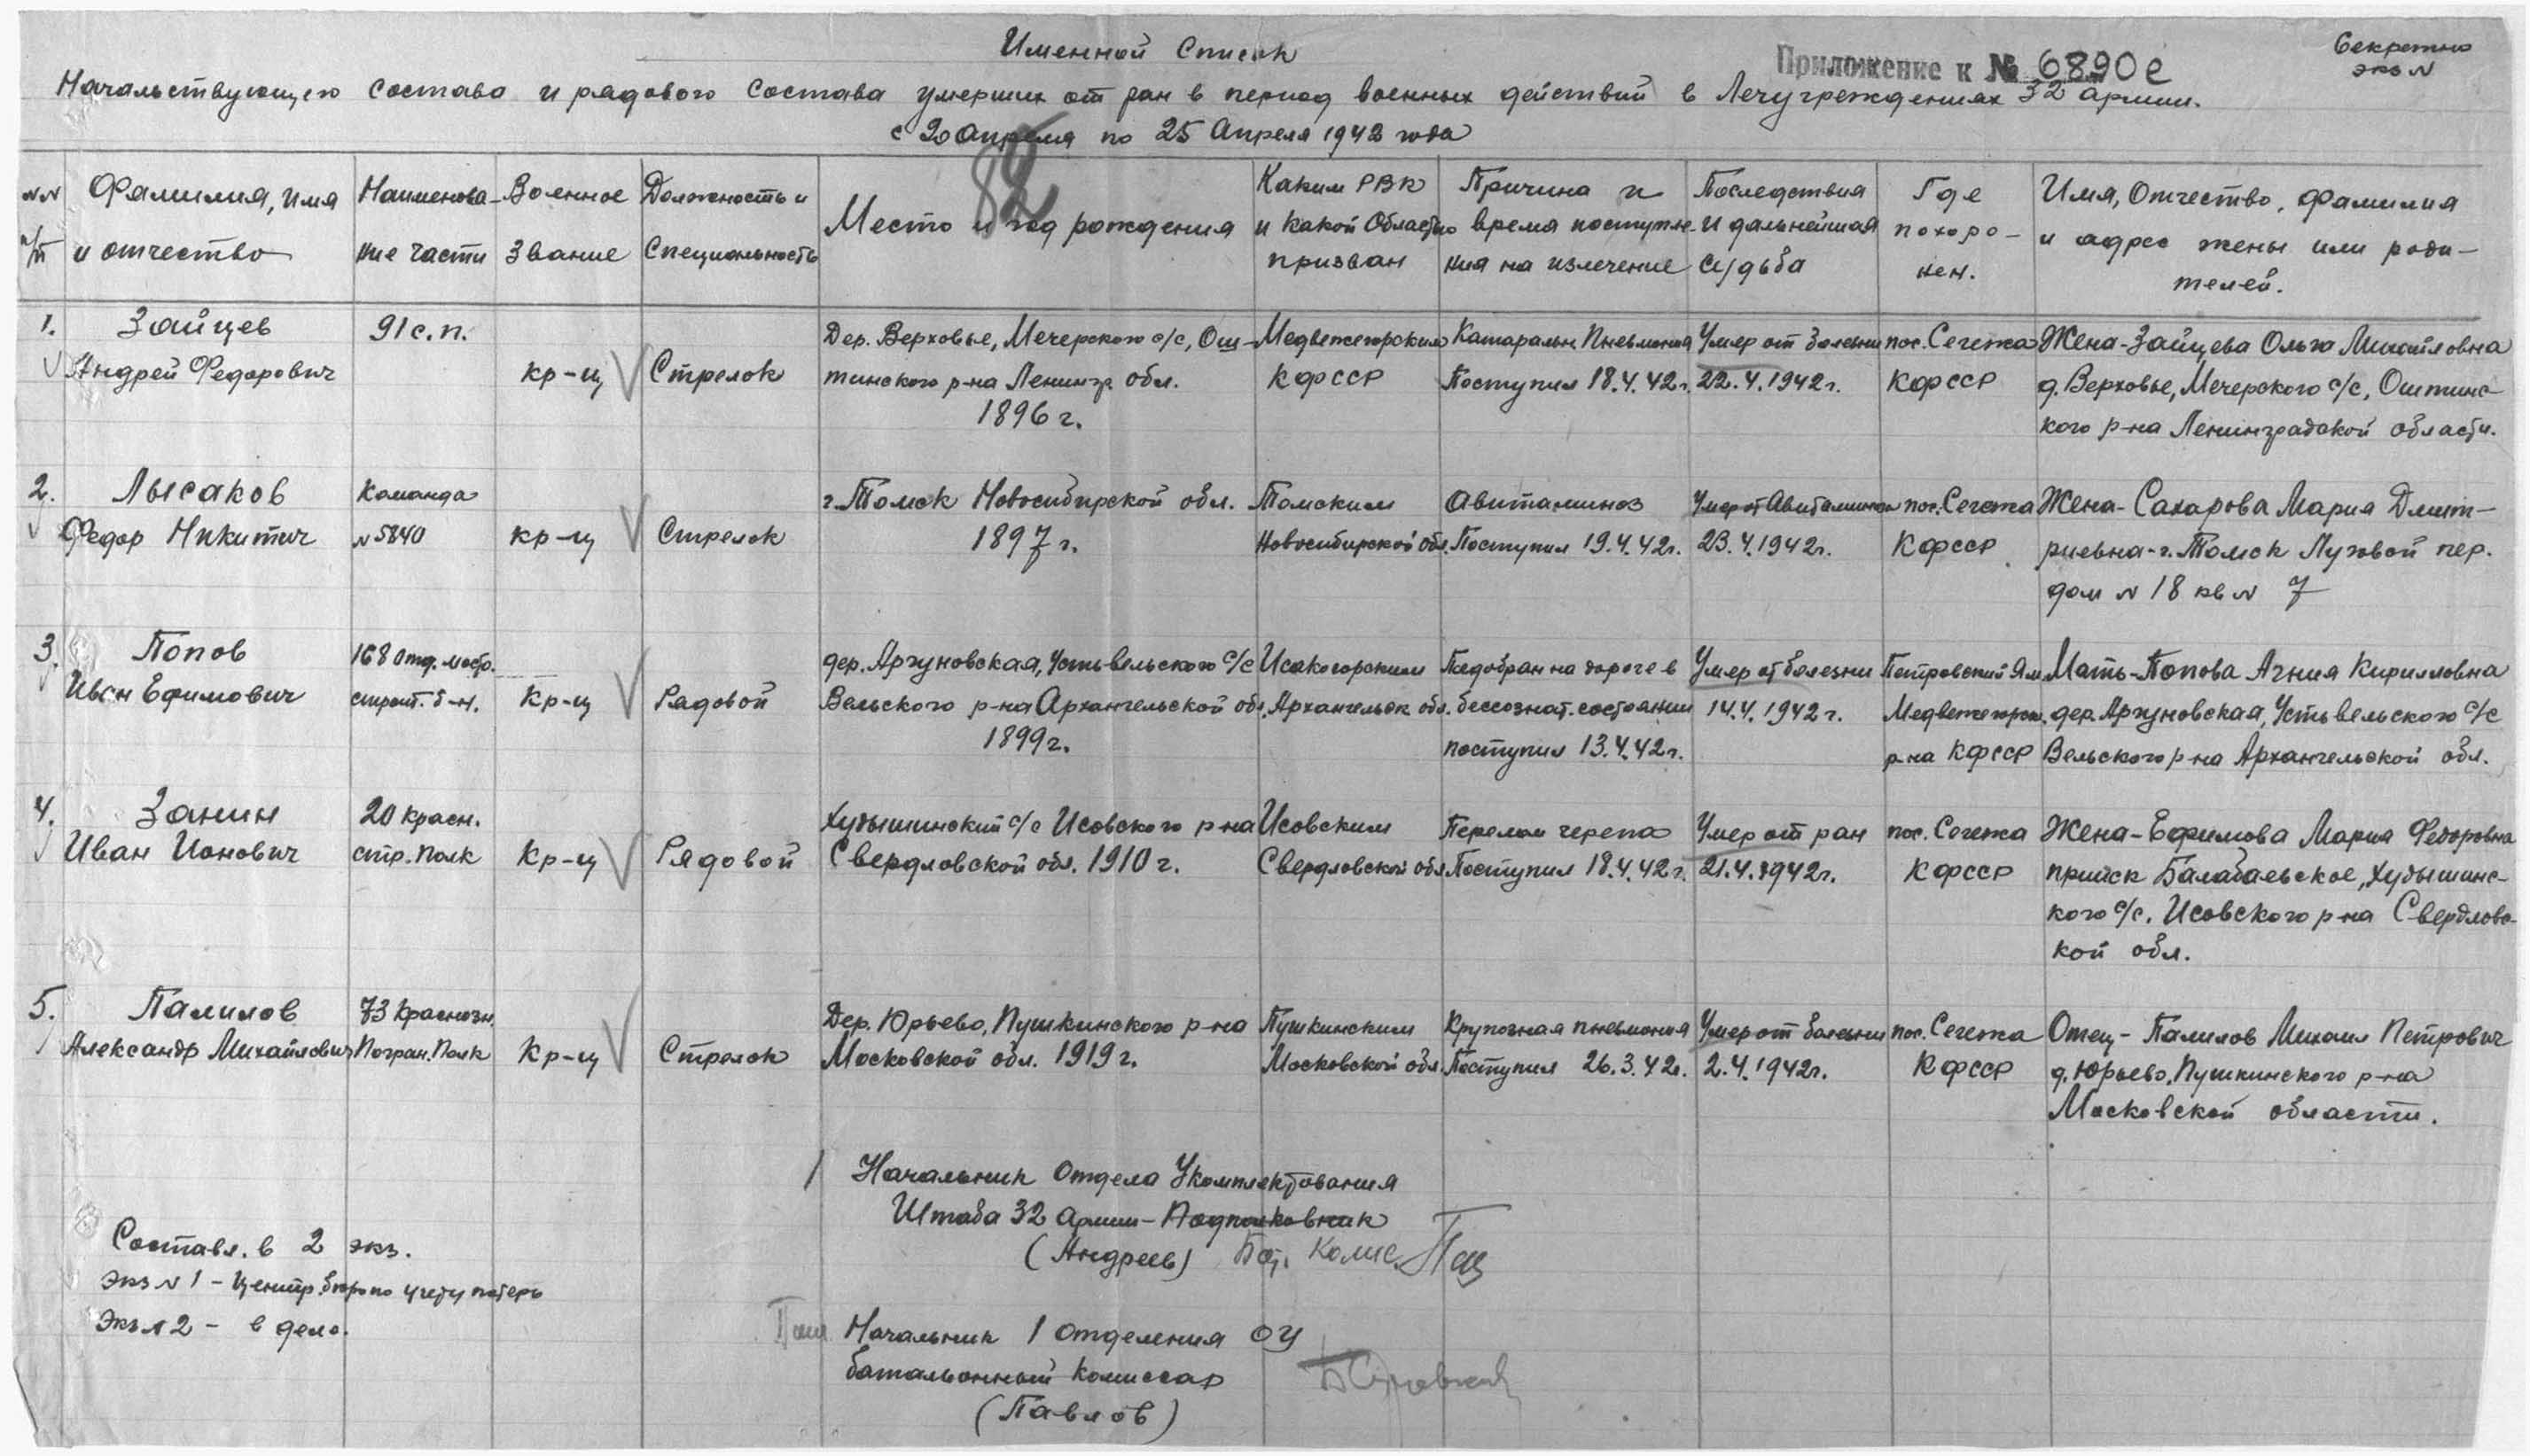 Именной Список
Приложение к № 6890с
Секретно
экз N
Начальствующего состава и рядового состава умерших от ран в период военных действий в Лечучреждениях 32 армии.
с 20 Апреля по 25 Апреля 1942 года
82
NN п/п
Фамилия, имя и отчество
Наименова-
ние части
Военное звание
Должность и специальность
Место и год рождения
Каким РВК
и какой Областью
призван
Причина и
время поступле-
ния на излечение
Последствия
и дальнейшая
судьба
Где
похоро-
нен.
Имя, Отчество, Фамилия
и адрес жены или роди-
телей.
1.
Зайцев
Андрей Федорович
91 с.п.
кр-ц
Стрелок
Дер. Верховье, Мечерского с/с, Ош-
тинского р-на Ленингр. обл.
1896 г.
Медвежегорским
КФССР
Катаральн. Пневмония
Поступил 18.4.42г.
Умер от болезни
22.4.1942г.
пос. Сегежа
КФССР
Жена-Зайцева Ольга Михайловна
д. Верховье, Мечерского с/с, Оштинс-
кого р-на Ленинградской области.
2.
Лысаков
Федор Никитич
Команда
N 5840
кр-ц
Стрелок
г. Томск Новосибирской обл.
1897 г.
Томским
Новосибирской обл.
Авитаминоз
Поступил 19.4.42г.
Умер от Авитаминоза
23.4.1942г.
пос. Сегежа
КФССР
Жена- Сахарова Мария Дмит-
риевна-г. Томск Луговой пер.
дом N 18 кв N 7
3.
Попов
Иван Ефимович
168 отд. мосто.
строит. б-н.
Кр-ц
Рядовой
дер. Аргуновская, Устьвельского с/с
Вельского р-на Архангельской обл.
1899г.
Исакогорским
Архангельск обл.
Подобран на дороге в
бессознат. состоянии
поступил 13.4.42г.
Умер от болезни
14.4.1942г.
Петровский Ям
Медвежегорск.
р-на КФССР
Мать-Попова Агния Кирилловна
дер. Аргуновская, Устьвельского с/с
Вельского р-на Архангельской обл.
4.
Занин
Иван Ионович
20 красн.
стр. полк
Кр-ц
Рядовой
Худышинский с/с Исовского р-на
Свердловской обл. 1910 г.
Исовским
Свердловской обл.
Перелом черепа
Поступил 18.4.42г.
Умер от ран
21.4.1942г.
пос. Сегежа
КФССР
Жена-Ефимова Мария Федоровна
прииск Балабаевское, Худышинс-
кого с/с. Исовского р-на Свердловс-
кой обл.
5.
Палилов
Александр Михайлович
73 Краснозн.
Погран. Полк
Кр-ц
Стрелок
Дер. Юрьево, Пушкинского р-на
Московской обл. 1919 г.
Пушкинским
Московской обл.
Крупозная пневмония
Поступил 26.3.42г.
Умер от болезни
2.4.1942г.
пос. Сегежа
КФССР
Отец- Палилов Михаил Петрович
д. Юрьево, Пушкинского р-на
Московской области.
Начальник Отдела Укомплектования
Штаба 32 Армии-Подполковник
(Андреев) Бат. Комис.
Составл. в 2 экз.
Экз N 1 - Центр. бюро по учету потерь
Экз N 2 - в дело.
Начальник 1 Отделения ОУ
батальонный комиссар
(Павлов)